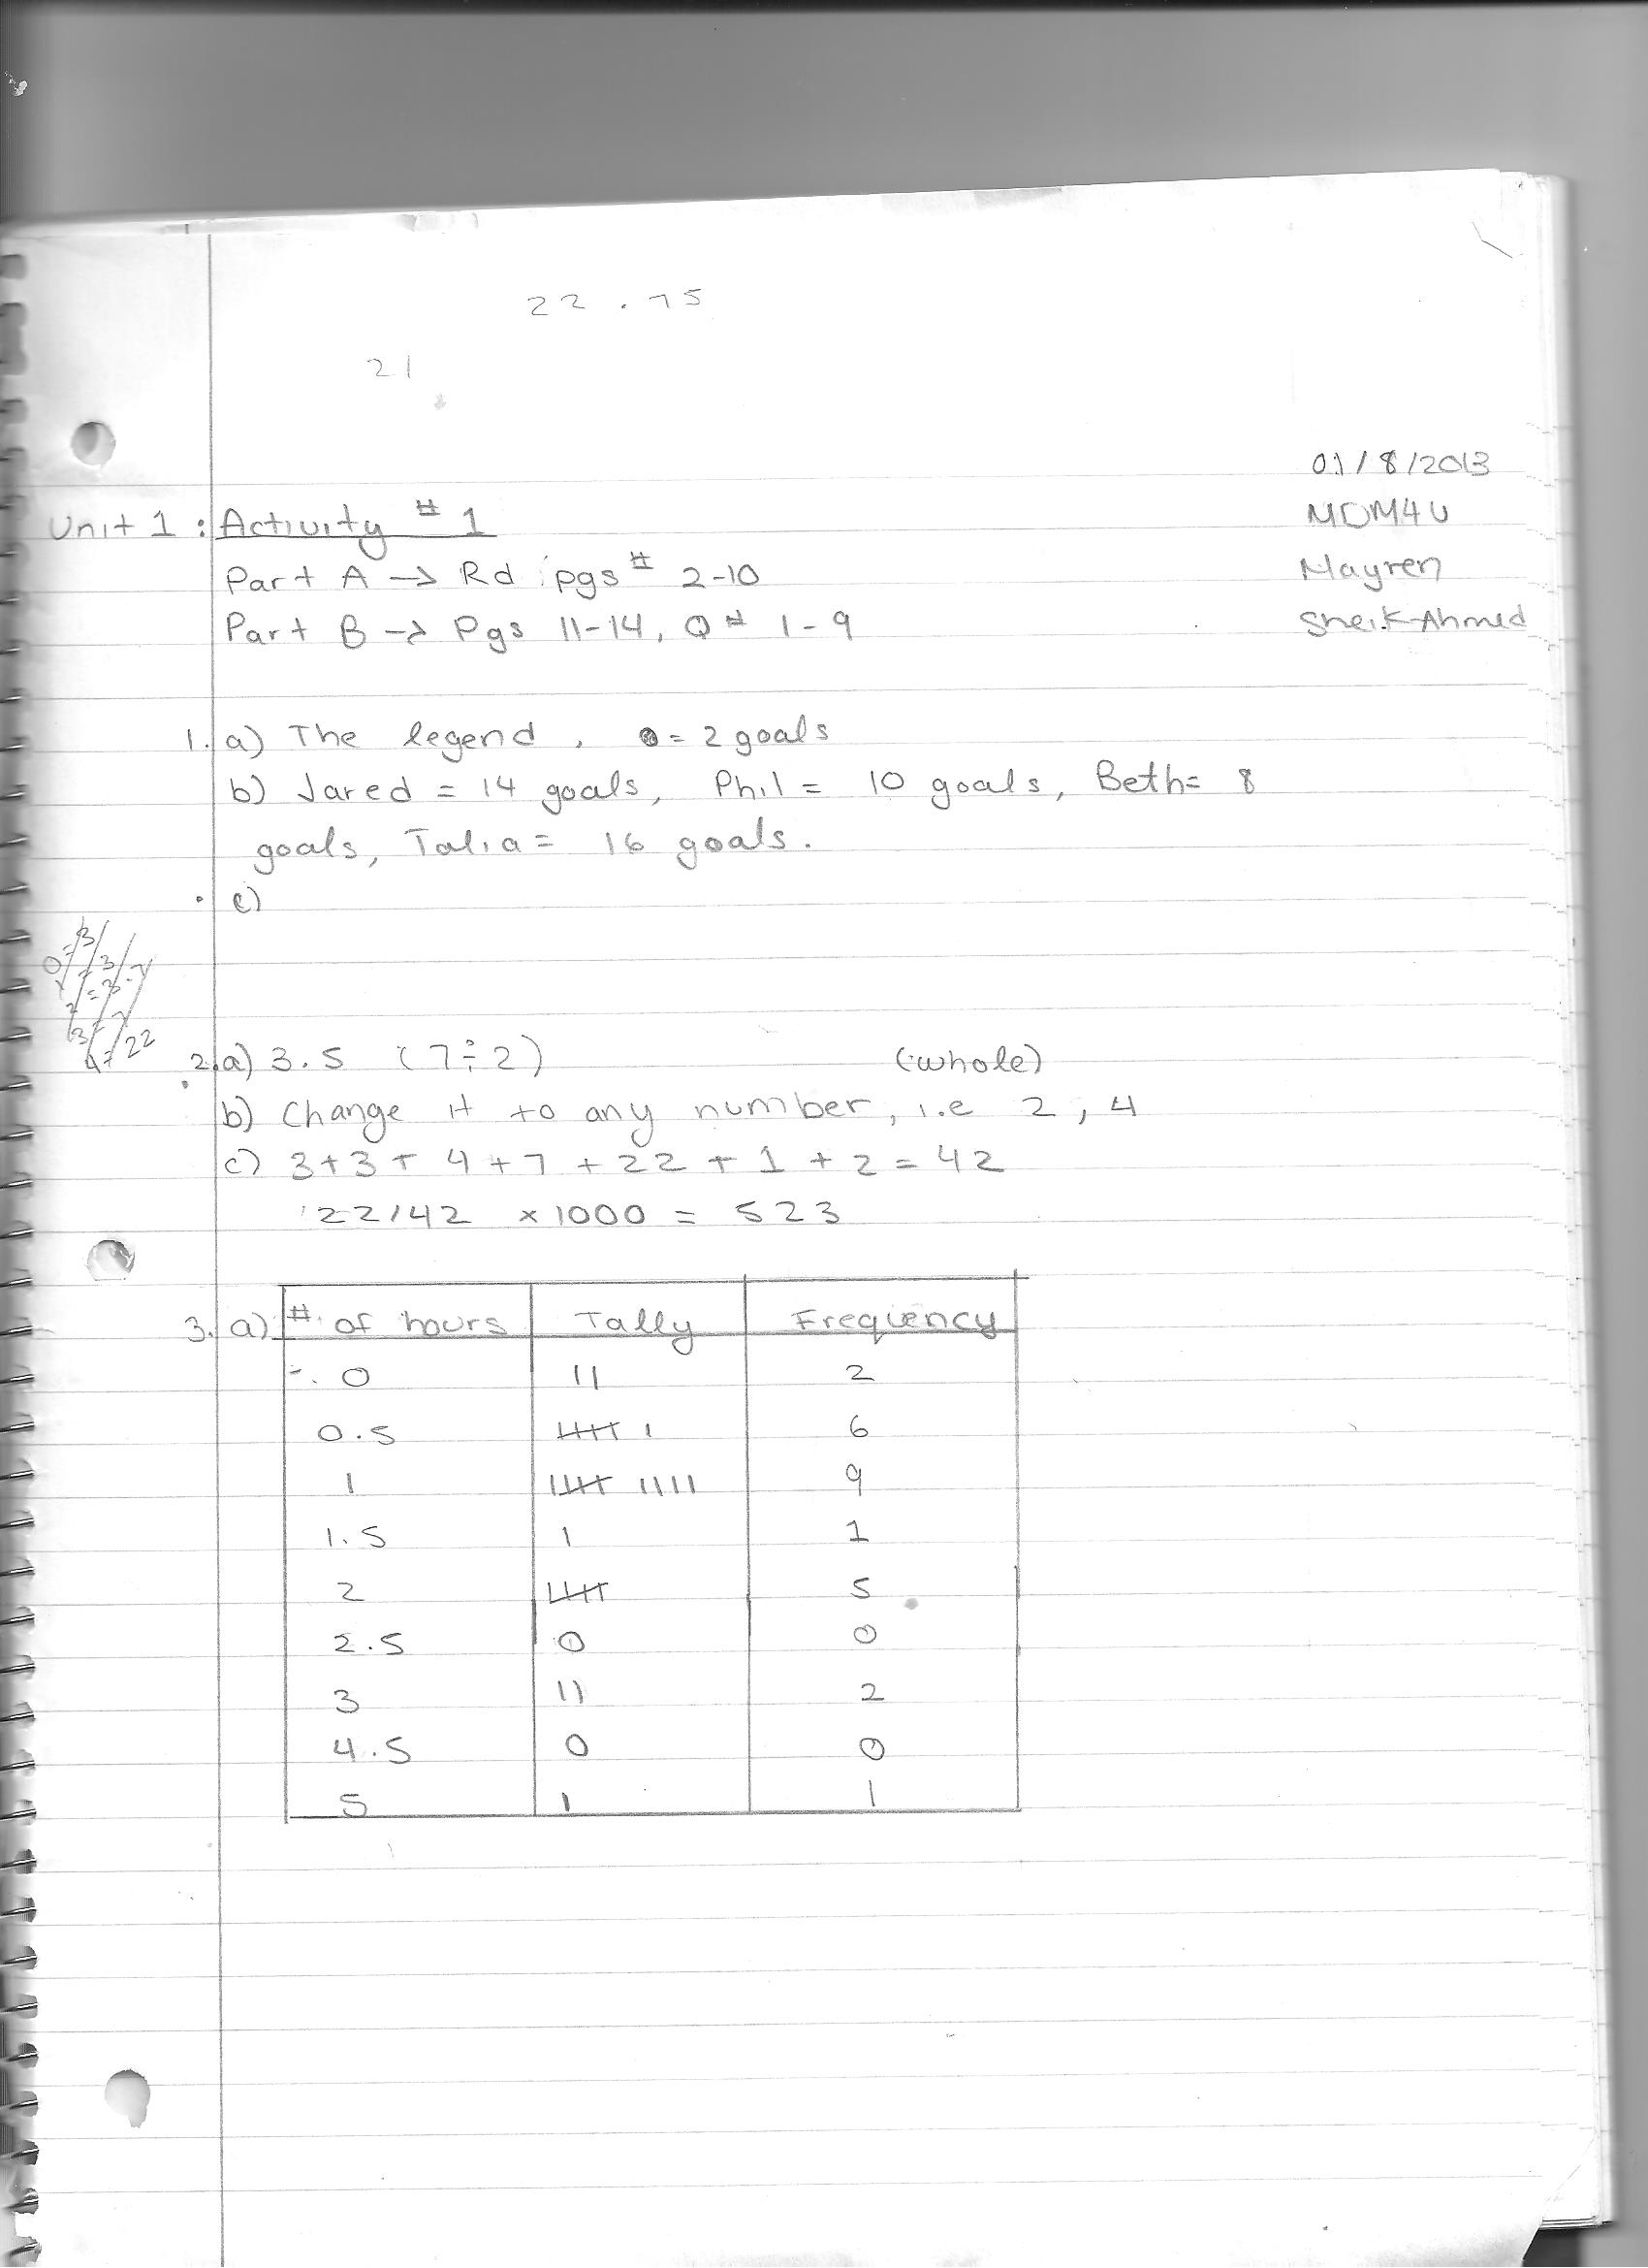 22.75
21
01/8/2013
MDM4U
Mayren
Sheik-Ahmed
Unit 1: Activity #1
Part A → Rd pgs # 2-10
Part B → Pgs 11-14, Q# 1-9
1. a) The legend, = 2 goals
b) Jared = 14 goals, Phil = 10 goals, Beth = 8
goals, Talia = 16 goals.
c)
2. a) 3.5 (7÷2) (whole)
b) Change it to any number, i.e 2, 4
c) 3+3+4+7+22+1+2=42
22/42 x1000 = 523
3. a) # of hours Tally Frequency
0 || 2
0.5 卌 | 6
1 卌 |||| 9
1.5 | 1
2 卌 5
2.5 0 0
3 || 2
4.5 0 0
5 | 1